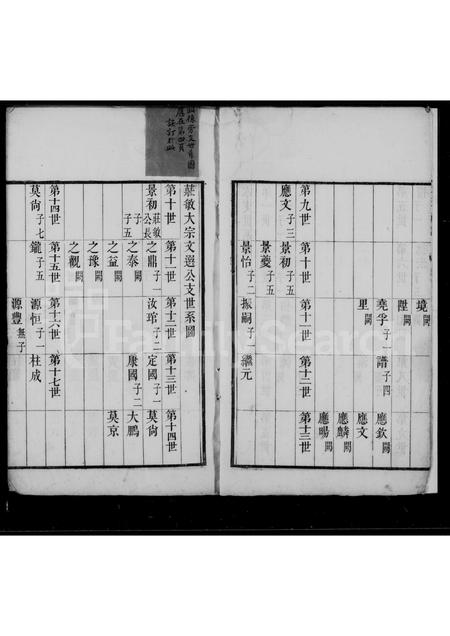 境闕
陞闕
堯孚子一 譜子四 應欽闕
里闕 應文
應麟闕
應暘闕
第九世 第十世 第十一世 第十二世 第十三世
應文子三 景初子五
景夔子五
景怡子二 振嗣子一 繼元
莊敏大宗文選公支世系圖
第十世 第十一世 第十二世 第十三世 第十四世
景初莊敏公長子五 之鼎子一 汝琯子二 定國子一 莫尚
之泰闕 康國子二 大鵬
之益闕 莫京
之豫闕
之觀闕
第十四世 第十五世 第十六世 第十七世
莫尚子七 鑨子五 源恒子一 杜成
源豐無子
FamilySearch